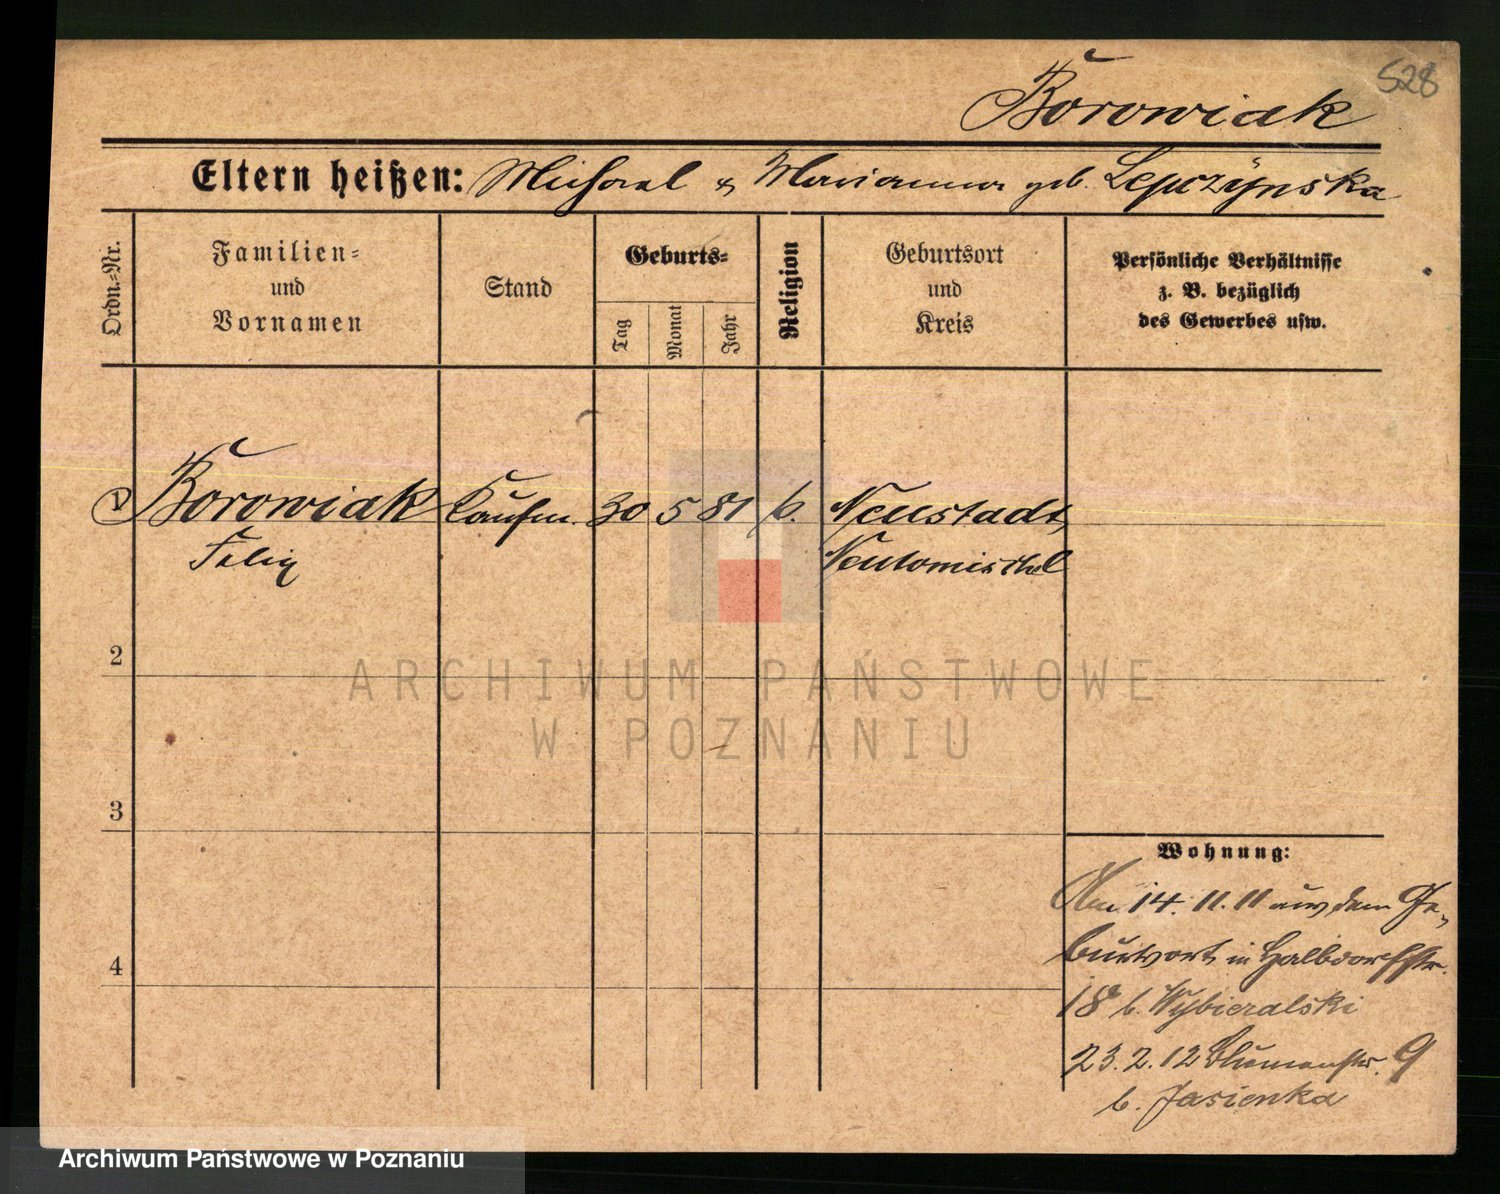 528
Borowiak
Eltern heißen: Michael & Marianna geb. Lepczynska
Ordn.=Nr.
Familien=
und
Vornamen
Stand
Geburts=
Tag
Monat
Jahr
Religion
Geburtsort
und
Kreis
Persönliche Verhältnisse
z. B. bezüglich
des Gewerbes usw.
1 Borowiak Kaufm. 30 5 81 k. Neustadt
Felix Neutomischel
2
3
4
Wohnung:
Am 14. 11. 11 aus dem Ge-
burtsort in Halbdorfstr.
18 b. Wybieralski
23. 2. 12 Blumenstr. 9
b. Jasienka
ARCHIWUM PAŃSTWOWE
W POZNANIU
Archiwum Państwowe w Poznaniu